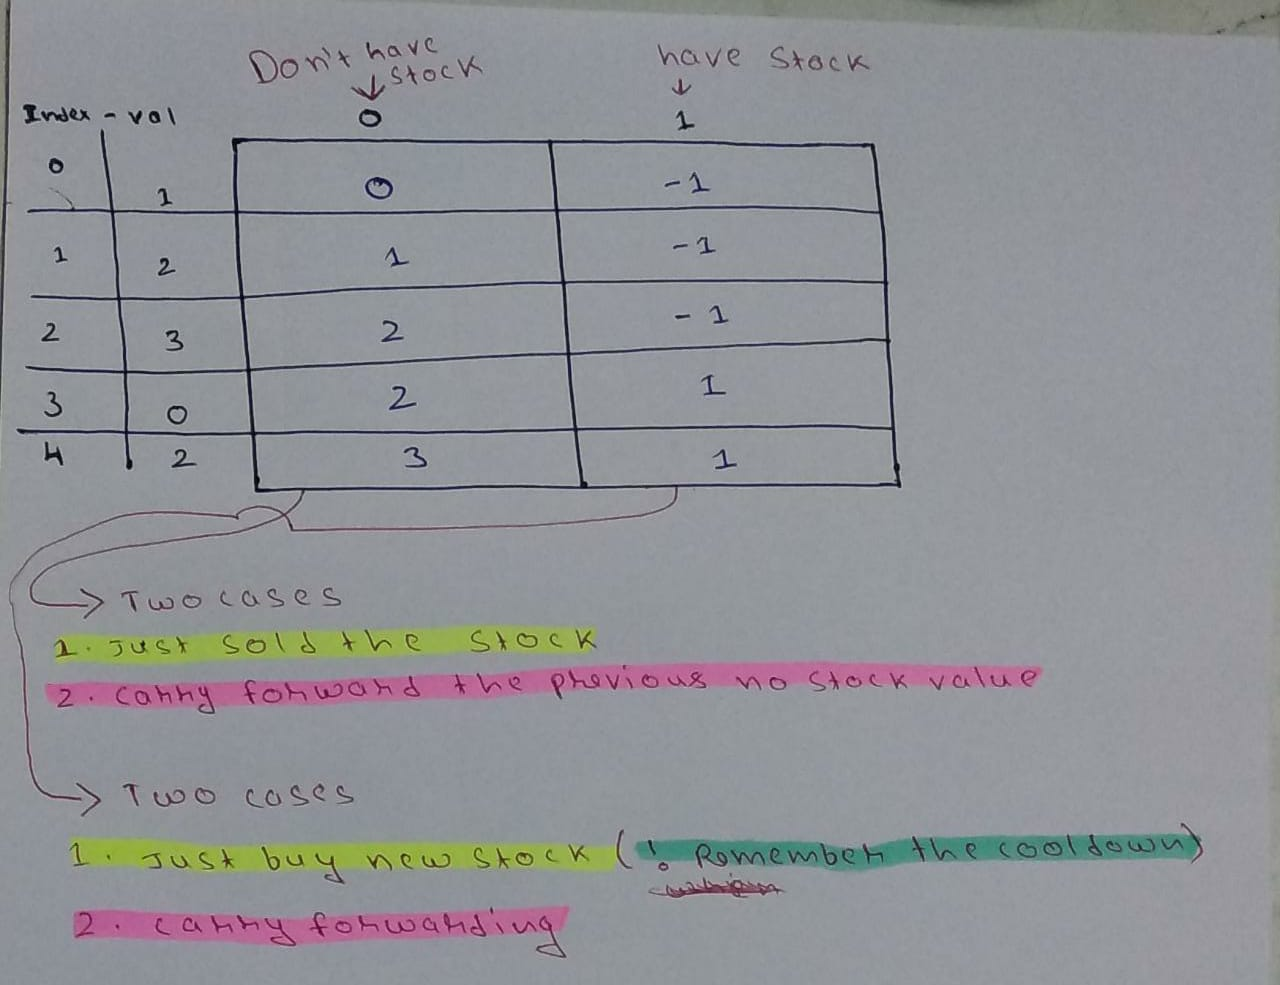 Don't have
stock
have Stock
Index - val
0
1
0
1
0
-1
1
2
1
-1
2
3
2
-1
3
0
2
1
4
2
3
1
Two cases
1. Just sold the stock
2. carry forward the previous no stock value
Two cases
1. Just buy new stock (! Remember the cooldown)
2. carry forwarding